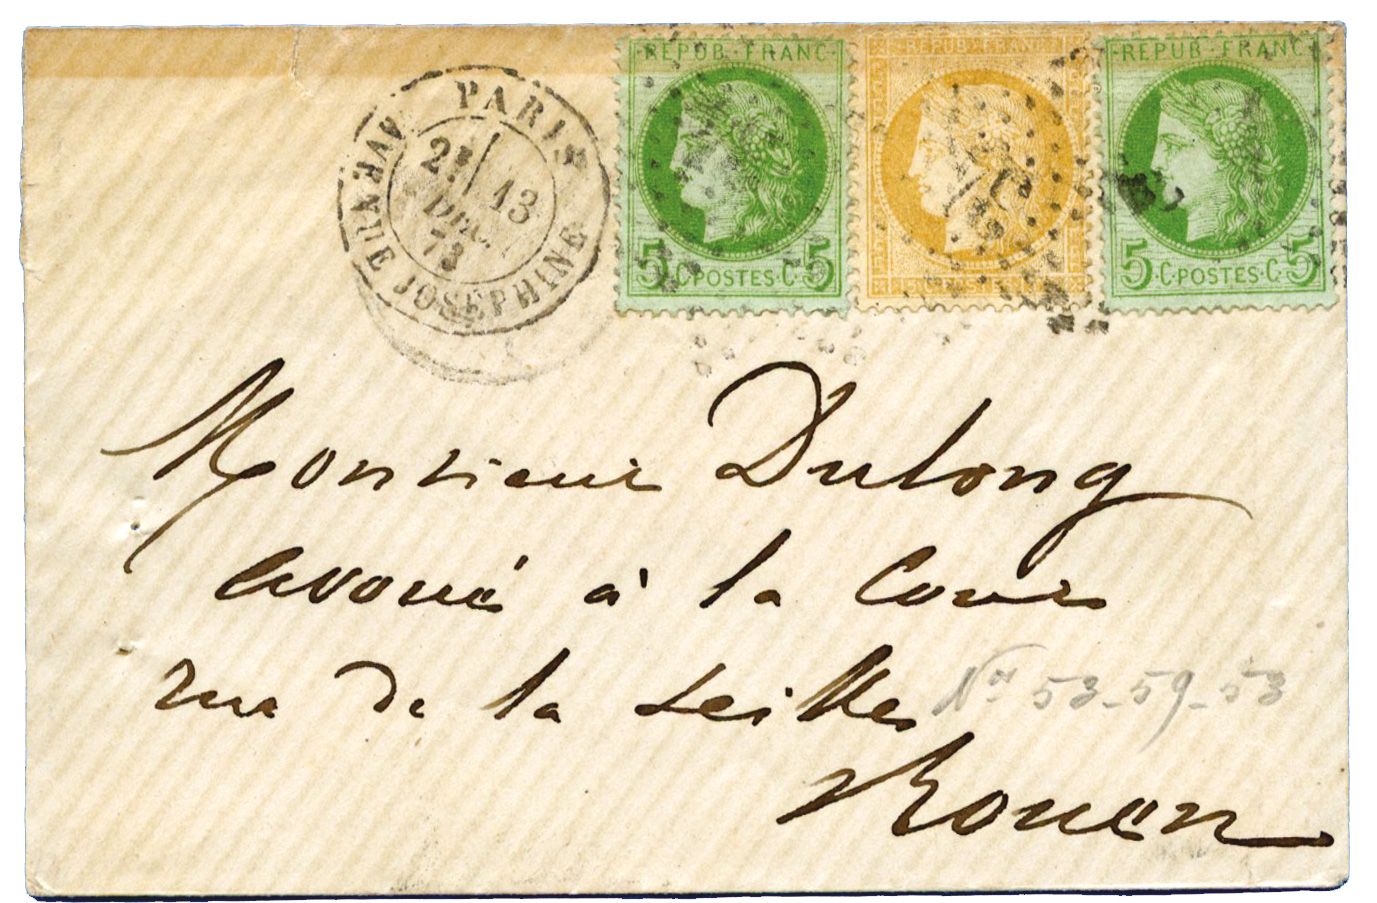 REPUB·FRANC·
5·C·POSTES·C·5
REPUB·FRANC·
REPUB·FRANC·
5·C·POSTES·C·5
PARIS
2ᴱ 13
DEC.
73
AV. JOSÉPHINE
Monsieur Dulong
avoué à la Cour
rue de la
Nos 53-59-53
Rouen